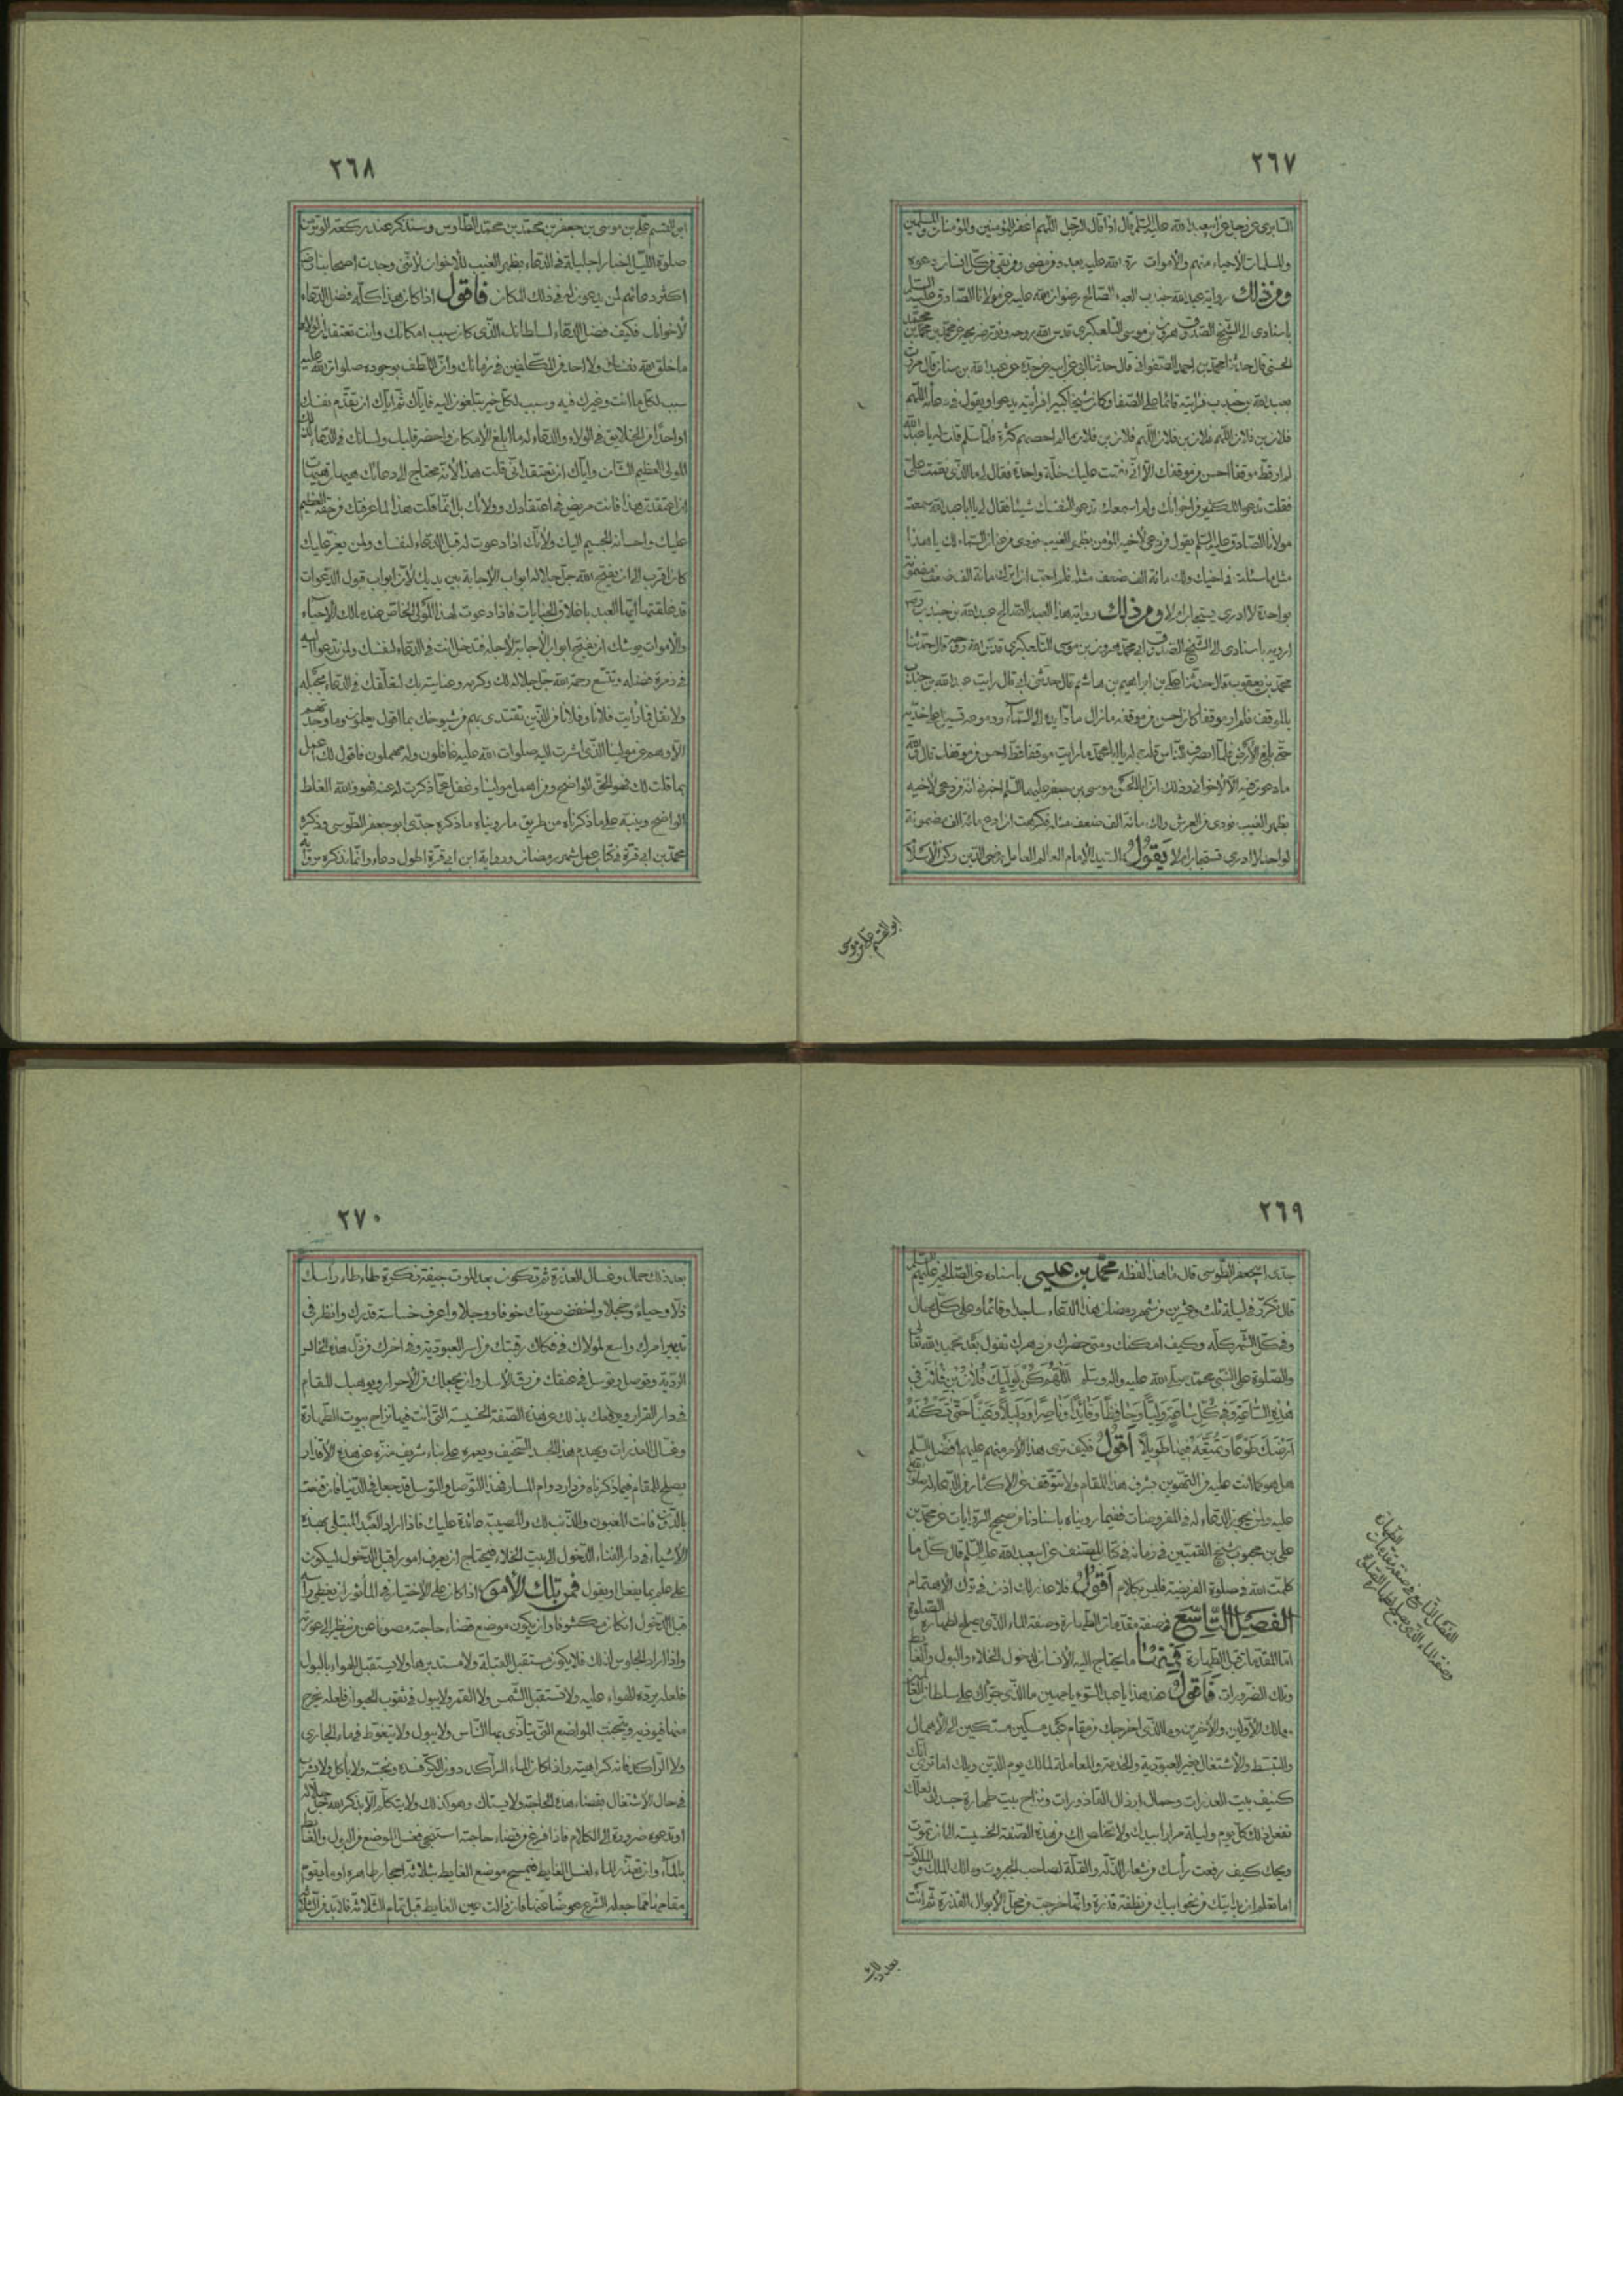 ٢٦٧
السابرى عن رجل عن ابيعبد الله عليه السلم قال اذا قال الرجل اللهم اغفر للمؤمنين والمؤمنات والمسلمين
والمسلمات الاحياء منهم والأموات رد الله عليه بعدد من مضى ومن بقى من كل انسان دعوة
ومن ذلك رواية عبد الله بن جندب العبد الصالح رضوان الله عليه عن مولانا الصادق عليه السلم
باسنادى الى الشيخ الصدوق هرون بن موسى التلعكبرى قدس الله روحه ونور ضريحه عن محمد بن محمد
الحسنى قال حدثنا محمد بن احمد الصفوانى قال حدثنا ابى عن ابيه عن جده عن عبد الله بن سنان قال مررت
بعبد الله بن جندب فرايته قائما على الصفا وكان شيخا كبيرا فرأيته يدعو ويقول فى دعائه اللهم
فلان بن فلان اللهم فلان بن فلان اللهم فلان بن فلان ما لم احصهم كثرة فلما سلم قلت له يا عبد الله
لم ار قط موقفا احسن من موقفك الا انى نقمت عليك خلة واحدة فقال لى ما الذى نقمت على
فقلت تدعو للكثير من اخوانك ولم اسمعك تدعو لنفسك شيئا فقال لى يا عبد الله سمعت
مولانا الصادق عليه السلم يقول من دعى لأخيه المؤمن بظهر الغيب نودى من عنان السماء لك يا هذا
مثل ما سئلت فى اخيك ولك مائة الف ضعف مثله فلم احب ان اترك مائة الف ضعف مضمونة
بواحدة لا ادرى يستجاب ام لا ومن ذلك رواية هذا العبد الصالح عبد الله بن جندب
ارويه باسنادى الى الشيخ الصدوق ابى محمد هرون بن موسى التلعكبرى قدس الله روحه قال حدثنا
محمد بن يعقوب قال حدثنا على بن ابراهيم بن هاشم قال حدثنى ابى قال رايت عبد الله بن جندب
بالموقف فلم ار موقفا كان احسن من موقفه ما زال مادا يده الى السماء ودموعه تسيل على خديه
حتى بلغ الأرض فلما انصرف الناس قلت له يا ابا محمد ما رايت موقفا قط احسن من موقفك قال والله
ما دعوت فيه الا لاخوانى وذلك ان ابا الحسن موسى بن جعفر عليهما السلم اخبرنى انه من دعى لأخيه
بظهر الغيب نودى من العرش ولك مائة الف ضعف مثله فكرهت ان ادع مائة الف مضمونة
لواحد لا ادرى تستجاب ام لا يقول السيد الامام العالم العامل رضى الدين ركن الاسلام
ابو القسم على بن موسى
٢٦٨
ابو القسم على بن موسى بن جعفر بن محمد بن محمد الطاوس وسنذكر عند ركعة الوتر من
صلوة الليل اخبارا جليلة فى الدعاء بظهر الغيب للأخوان لأننى وجدت اصحابنا رضى
اكثر دعائهم لمن يدعون له فى ذلك المكان فاقول اذا كان هذا كله فضل الدعاء
لأخوانك فكيف فضل الدعاء لسلطانك الذى كان سبب امكانك وانت تعتقد ان لولاه
ما خلق الله نفسك ولا احدا من المكلفين فى زمانك وان اللطف بوجوده صلوات الله عليه
سبب لكل ما انت وغيرك فيه وسبب لكل خير تبلغون اليه فاياك ثم اياك ان تقدم نفسك
او احدا من الخلايق فى الولاء والدعاء له بابلغ الأمكان واحضر قلبك ولسانك فى الدعاء لذلك
المولى العظيم الشان واياك ان تعتقد اننى قلت هذا لأنه محتاج الى دعائك هيهات هيهات
ان اعتقدت هذا فانت مريض فى اعتقادك وولائك بل انما قلت هذا لما عرفتك من حقه العظيم
عليك واحسانه الجسيم اليك ولأنك اذا دعوت له قبل الدعاء لنفسك ولمن يعز عليك
كان اقرب الى ان يفتح الله جل جلاله ابواب الأجابة بين يديك لأن ابواب قبول الدعوات
قد غلقتها ايها العبد باغلاق الجنايات فاذا دعوت لهذا المولى الخاص عند مالك الاحياء
والأموات يوشك ان يفتح ابواب الأجابة لأجله فتدخل انت فى الدعاء لنفسك ولمن تدعو له
فى زمرة فضله وتتسع رحمة الله جل جلاله لك وكرمه وعنايته بك لتعلقك فى الدعاء بحبله
ولا تقل فما رايت فلانا وفلانا من الذين تقتدى بهم من شيوخك بما اقول يعملون وما وجدتهم
الا وهم عن مولينا الذى اشرت اليه صلوات الله عليه غافلون وله مهملون فاقول لك اعمل
بما قلت لك فهو الحق الواضح ومن اهمل مولينا وغفل عما ذكرت له عنه فهو والله الغلط
الواضح وينبه على ما ذكرناه من طريق ما رويناه ما ذكره جدى ابو جعفر الطوسى وذكره
محمد بن ابى قرة فى كتاب عمل شهر رمضان ورواية ابن ابى قرة اطول دعاء وانما نذكره برواية
٢٦٩
جدى ابيجعفر الطوسى قال ما هذا لفظه محمد بن عيسى باسناده عن الصالحين عليهم السلم
قال تكرر فى ليلة ثلث وعشرين من شهر رمضان هذا الدعاء ساجدا وقائما وعلى كل حال
وفى كل الشهر كله وكيف امكنك ومتى حضرك من دهرك تقول بعد تحميد الله تعالى
والصلوة على النبى محمد صلى الله عليه واله وسلم اللهم كن لوليك فلان بن فلان فى
هذه الساعة وفى كل ساعة وليا وحافظا وقائدا وناصرا ودليلا وعينا حتى تسكنه
ارضك طوعا وتمتعه فيها طويلا اقول فكيف ترى هذا الأمر منهم عليهم افضل السلم
هل هو كما انت عليه من التهوين بشرف هذا المقام ولا تتوقف عن الاكثار من الدعاء له صلوات الله
عليه ولمن يجوز الدعاء له فى المفروضات ففيما رويناه باسنادنا من صحيح الروايات عن محمد بن
على بن محبوب شيخ القميين فى زمانه فى كتاب المصنف عن ابيعبد الله عليه السلم قال كل ما
كلمت الله فى صلوة الفريضة فليس بكلام اقول فلا عذر لك اذن فى ترك الأهتمام
الفصل التاسع فى صفة مقدمات الطهارة وصفة الماء الذى يصلح لطهارة الصلوة
اما المقدمات قبل الطهارة فمنها ما يحتاج اليه الأنسان لدخول الخلاء والبول والغائط
وتلك الضرورات فاقول عند هذا يا عبد السوء يا مهين ما الذى جرأك على سلطان العالمين
ومالك الأولين والأخرين وما الذى اخرجك من مقام عبد مسكين مستكين الى الأهمال
والتبسط والأشتغال بغير العبودية والخدمة والمعاملة لمالك يوم الدين ويلك اما ترى انك
كنيف بيت العذرات وحمال ارذال القاذورات ونزاح بيت طهارة جسدك بيدك
تفعل ذلك كل يوم وليلة مرارا بيدك ولا تخلص لك من هذه الصفة الخسيسة الى ان تموت
ويحك كيف رفعت رأسك من شعار الذلة والقلة لصاحب الجبروت ومالك الملك والملكوت
اما تعلم ان بدايتك من نجو ابيك من نطفة قذرة وانما خرجت من مجل الأبوال القذرة ثم انت
بعد ذلك
الفصل التاسع فى صفة مقدمات الطهارة
وصفة الماء الذى يصلح لطهارة الصلوة
٢٧٠
بعد ذلك حمال وغسال العذرة ثم تكون بعد الموت جيفة نكرة طاطاء راسك
ذلا وحياء وخجلا واخفض صوتك خوفا ووجلا واعرف خساسة قدرك وانظر فى
تدبير امرك واسع لمولاك فى فكاك رقبتك من اسر العبودية وفى اخرك من ذل هذه الحال
الردية وتوصل وتوسل فى عتقك من رق الأسار وان يجعلك من الأحرار ويوهبك للمقام
فى دار القرار ويرحمك بذلك عن هذه الصفة الخسيسة التى انت فيها نزاح بيوت الطهارة
وغسال العذرات ويهدم هذا الجسد السخيف ويعمره على بناء شريف منزه عن هذه الأقذار
يصلح للمقام فيما ذكرناه من دار دوام المسار فهذا التوصل والتوسل قد جعل فى الدنيا فان قنعت
بالدون فانت المغبون والذنب لك والمصيبة عائدة عليك فاذا اراد العبد المبتلى بهذه
الأشياء فى دار الفناء الدخول الى بيت الخلاء فيحتاج ان يعرف امورا قبل الدخول ليكون
على علم بما يفعل او يقول فمن تلك الأمور اذا كان على الاختيار فى المأثور ان يغطى راسه
قبل الدخول ان كان مكشوفا وان يكون موضع قضاء حاجته مصونا عن من ينظر الى عورته
واذا اراد الجلوس لذلك فلا يكون مستقبل القبلة ولا مستدبرها ولا يستقبل الهواء بالبول
فلعله يرده الهواء عليه ولا تستقبل الشمس ولا القمر ولا يبول فى ثقوب الحيوان فلعله يخرج
منها فيوذيه ويتجنب المواضع التى يتأذى بها الناس ولا يبول ولا يتغوط فى ماء الجارى
ولا الراكد فانه كراهية واذا كان الماء الراكد دون الكر فسده ونجسه ولا يأكل ولا يشرب
فى حال الاشتغال بقضاء هذه الحاجة ولا يستاك وهو كذلك ولا يتكلم الا بذكر الله جل جلاله
او تدعوه ضرورة الى الكلام فاذا فرغ من قضاء حاجته استنجى فغسل الموضع من البول والغائط
بالماء وان تعذر الماء لغسل الغايط فيمسح موضع الغايط بثلاثة احجار طاهرة او ما يقوم
مقامها مما جعله الشرع عوضا عنها فان زالت عين الغايط قبل تمام الثلاثة فلا بد من الثلاثة